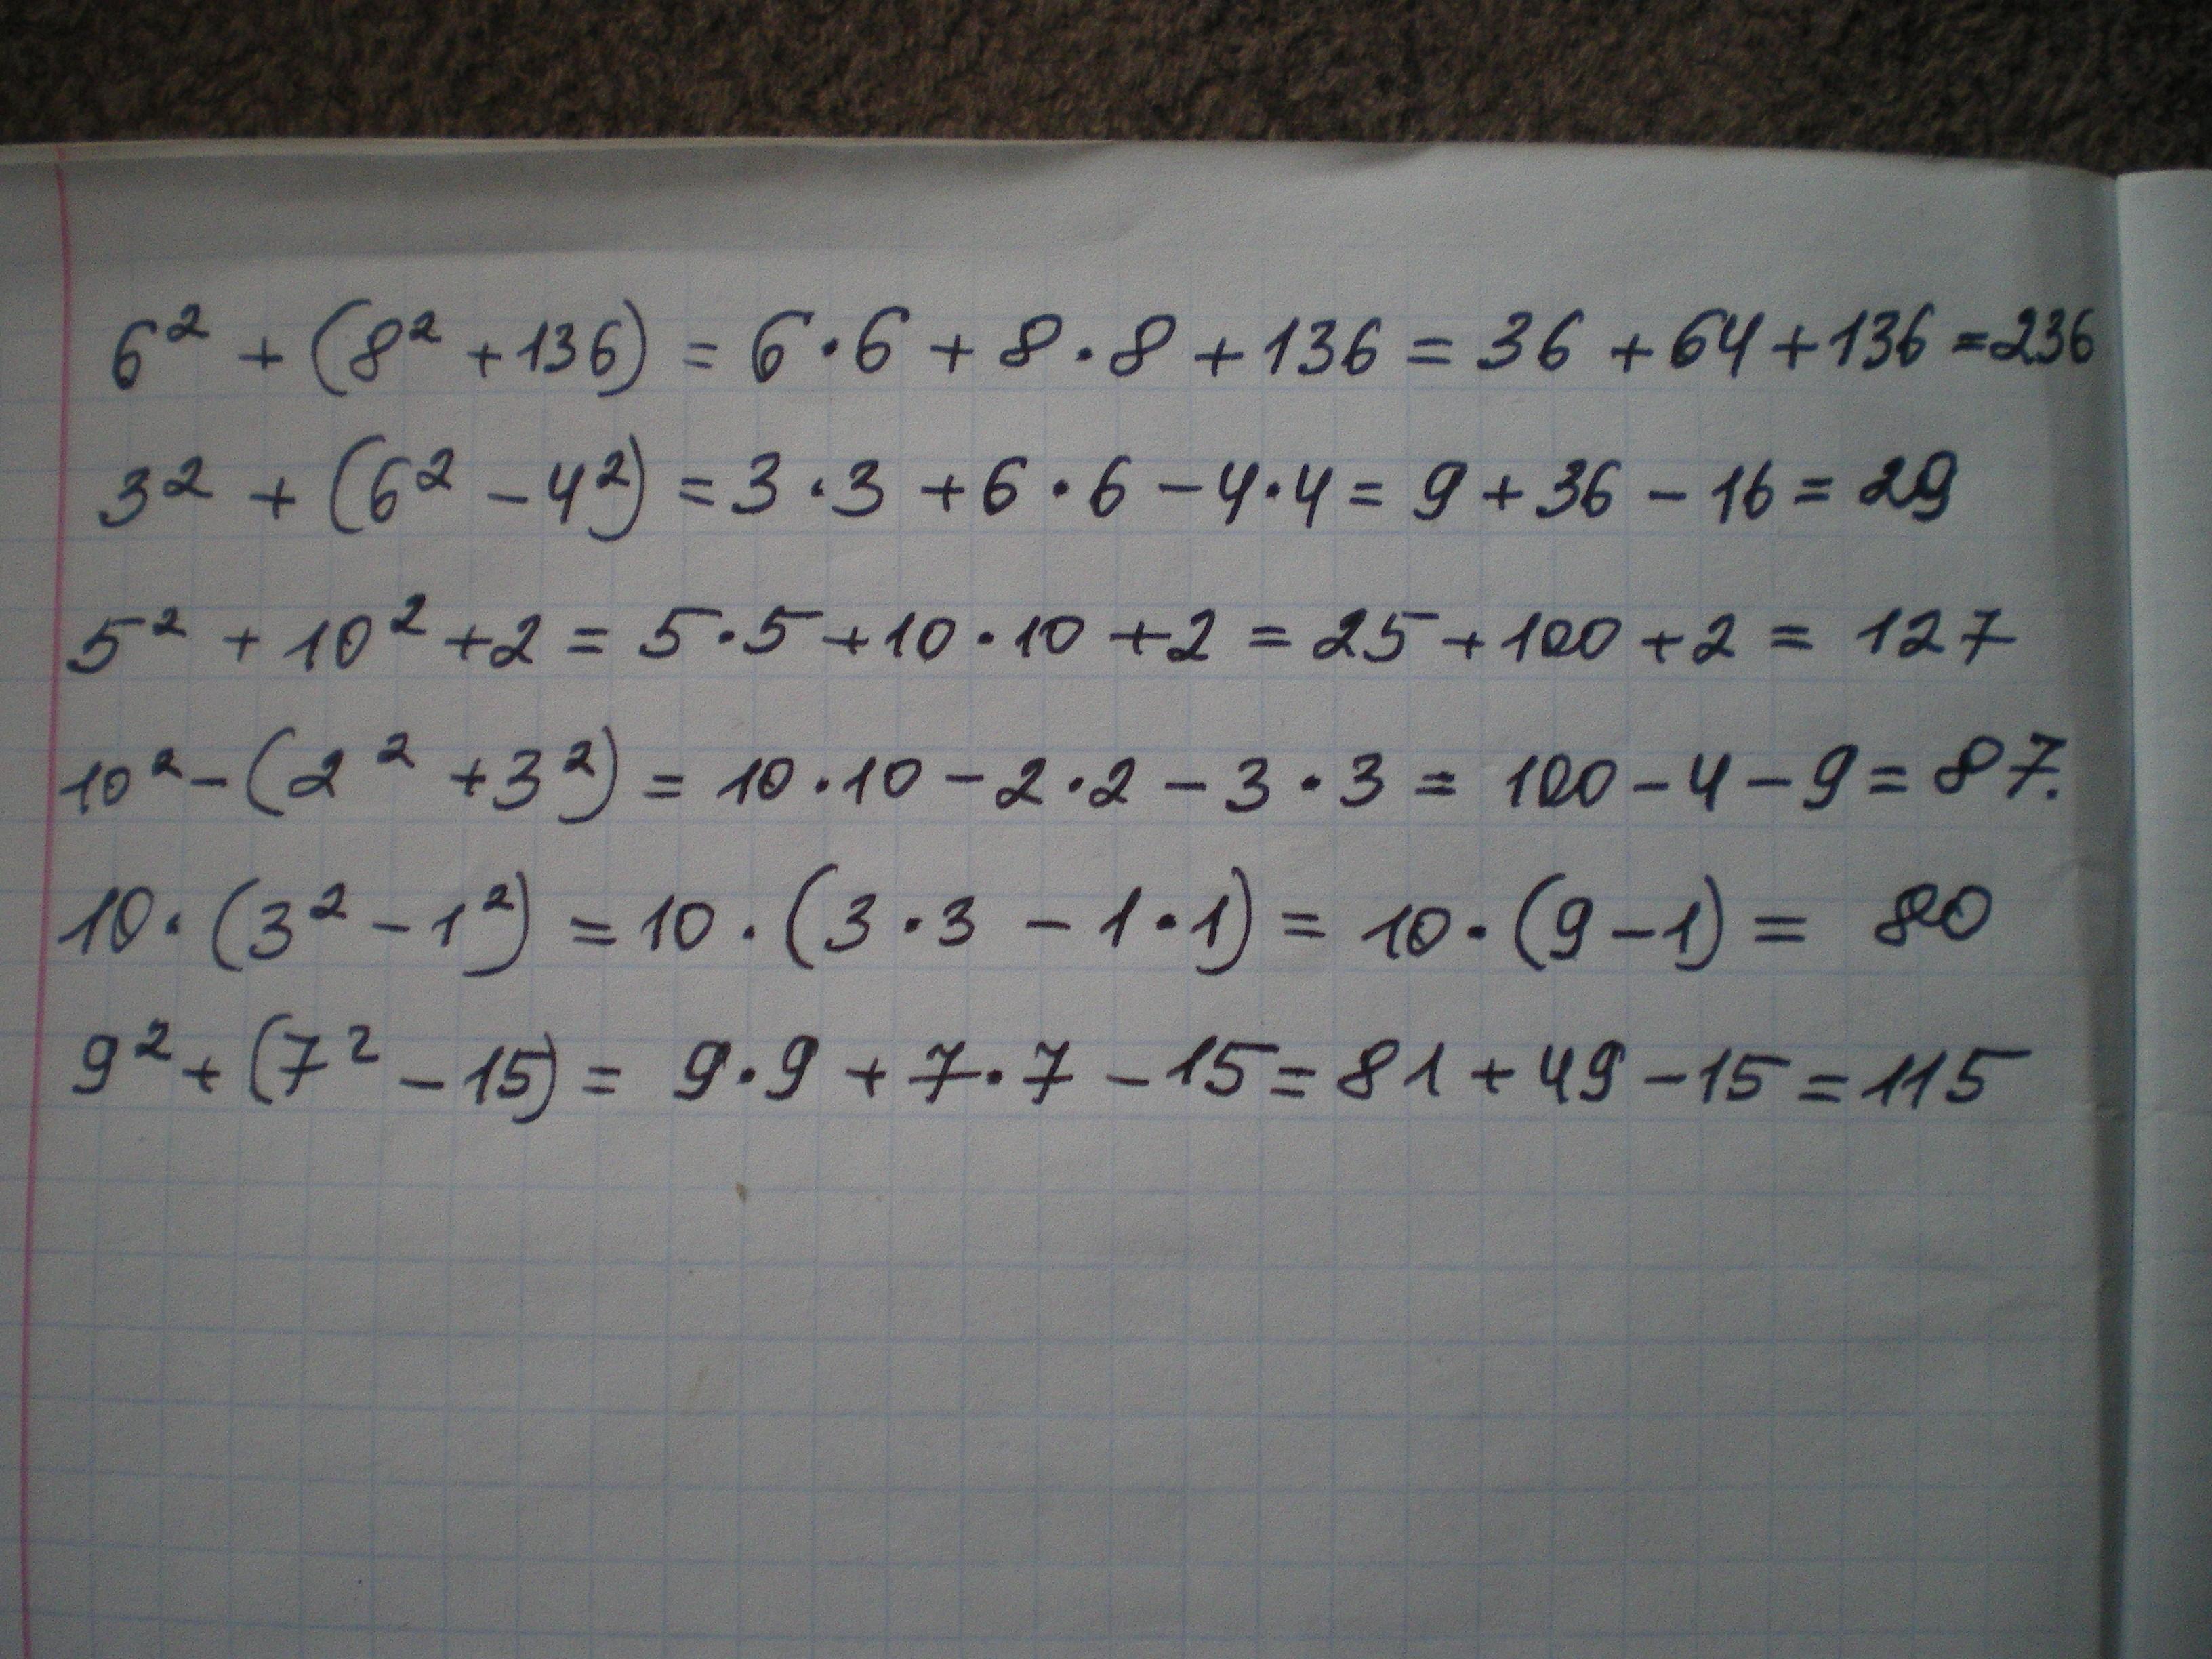 6² + (8² + 136) = 6 · 6 + 8 · 8 + 136 = 36 + 64 + 136 = 236
3² + (6² - 4²) = 3 · 3 + 6 · 6 - 4 · 4 = 9 + 36 - 16 = 29
5² + 10² + 2 = 5 · 5 + 10 · 10 + 2 = 25 + 100 + 2 = 127
10² - (2² + 3²) = 10 · 10 - 2 · 2 - 3 · 3 = 100 - 4 - 9 = 87.
10 · (3² - 1²) = 10 · (3 · 3 - 1 · 1) = 10 · (9 - 1) = 80
9² + (7² - 15) = 9 · 9 + 7 · 7 - 15 = 81 + 49 - 15 = 115